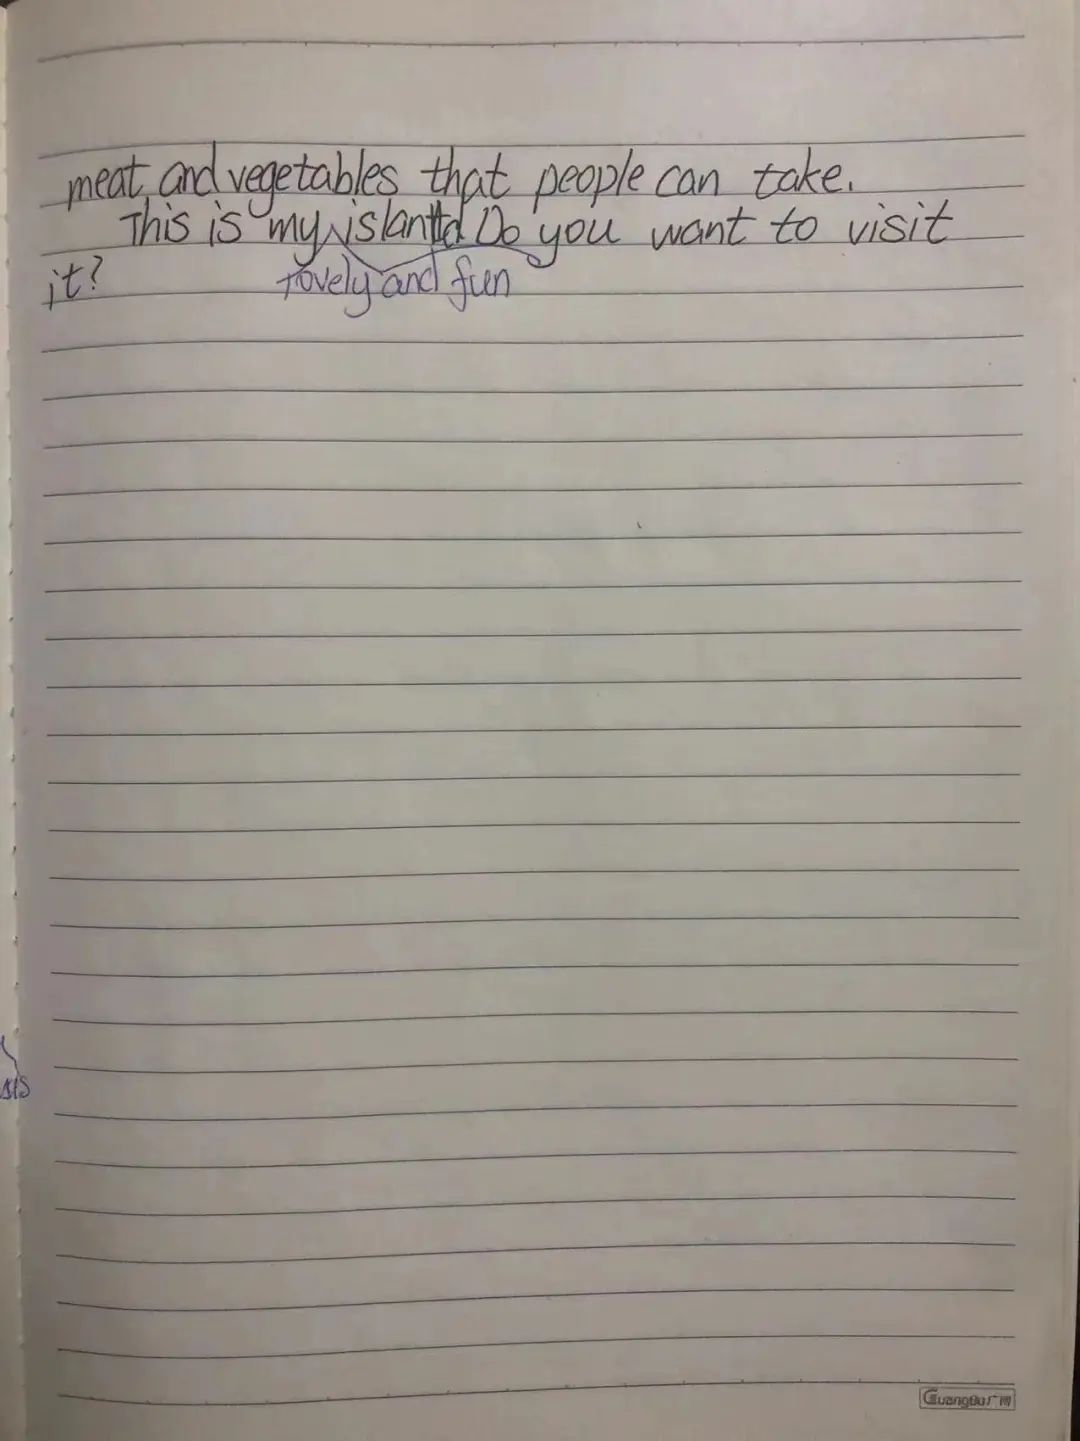 meat and vegetables that people can take.
This is my island Do you want to visit
it?
lovely and fun
GuangBo广博